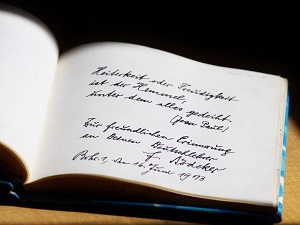 Heiterkeit oder Freudigkeit
ist der Himmel,
unter dem alles gedeiht.
(Jean Paul)
Zur freundlichen Erinnerung
an Deinen Deutschlehrer
F. Rädeker
den 16. Juni 1973